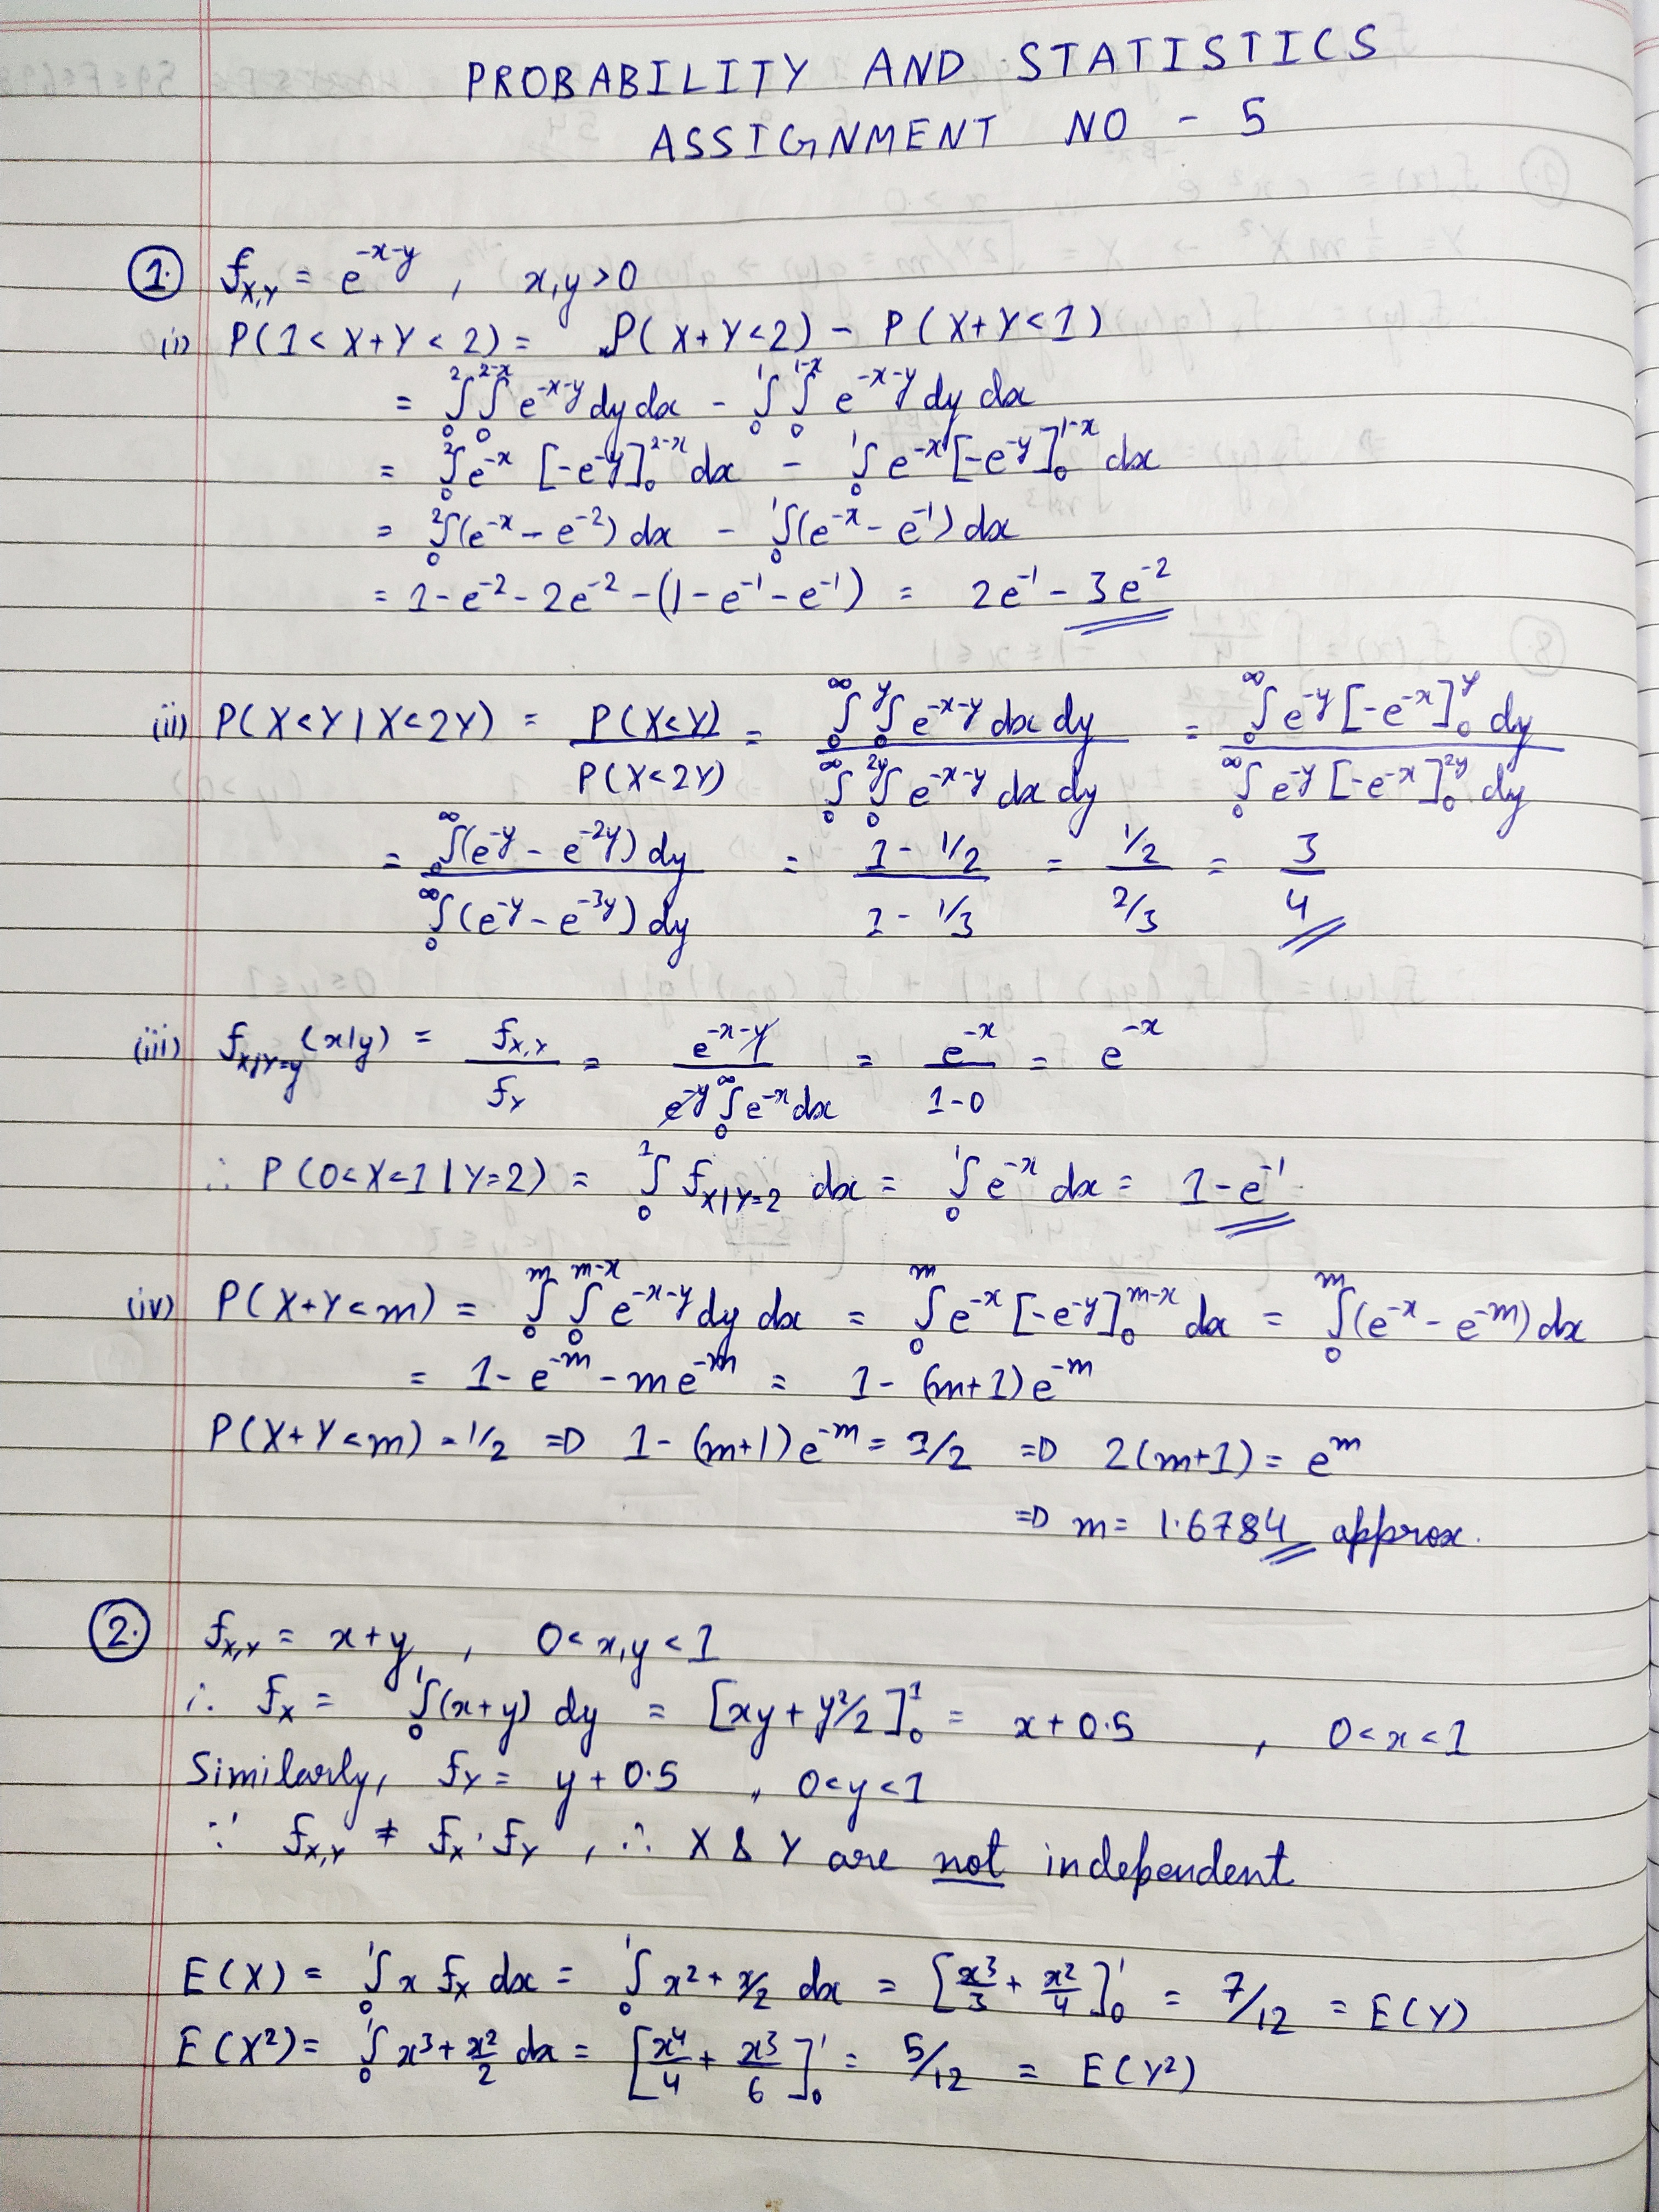 PROBABILITY AND STATISTICS
ASSIGNMENT NO - 5
1. f_{X,Y} = e^{-x-y} , x,y>0
(i) P(1 < X+Y < 2) = P(X+Y<2) - P(X+Y<1)
= ∫_0^2 ∫_0^{2-x} e^{-x-y} dy dx - ∫_0^1 ∫_0^{1-x} e^{-x-y} dy dx
= ∫_0^2 e^{-x} [-e^{-y}]_0^{2-x} dx - ∫_0^1 e^{-x} [-e^{-y}]_0^{1-x} dx
= ∫_0^2 (e^{-x} - e^{-2}) dx - ∫_0^1 (e^{-x} - e^{-1}) dx
= 1 - e^{-2} - 2e^{-2} - (1 - e^{-1} - e^{-1}) = 2e^{-1} - 3e^{-2}
(ii) P(X<Y | X<2Y) = P(X<Y) / P(X<2Y) = ∫_0^∞ ∫_0^y e^{-x-y} dx dy / ∫_0^∞ ∫_0^{2y} e^{-x-y} dx dy = ∫_0^∞ e^{-y} [-e^{-x}]_0^y dy / ∫_0^∞ e^{-y} [-e^{-x}]_0^{2y} dy
= ∫_0^∞ (e^{-y} - e^{-2y}) dy / ∫_0^∞ (e^{-y} - e^{-3y}) dy = (1 - 1/2) / (1 - 1/3) = (1/2) / (2/3) = 3/4
(iii) f_{X|Y=y} (x|y) = f_{X,Y} / f_Y = e^{-x-y} / e^{-y} ∫_0^∞ e^{-x} dx = e^{-x} / 1-0 = e^{-x}
∴ P(0<X<1 | Y=2) = ∫_0^1 f_{X|Y=2} dx = ∫_0^1 e^{-x} dx = 1 - e^{-1}
(iv) P(X+Y<m) = ∫_0^m ∫_0^{m-x} e^{-x-y} dy dx = ∫_0^m e^{-x} [-e^{-y}]_0^{m-x} dx = ∫_0^m (e^{-x} - e^{-m}) dx
= 1 - e^{-m} - me^{-m} = 1 - (m+1) e^{-m}
P(X+Y<m) = 1/2 ⇒ 1 - (m+1) e^{-m} = 1/2 ⇒ 2(m+1) = e^m
⇒ m = 1.6784 approx.
2. f_{X,Y} = x+y , 0<x,y<1
∴ f_X = ∫_0^1 (x+y) dy = [xy + y²/2]_0^1 = x + 0.5 , 0<x<1
Similarly, f_Y = y + 0.5 , 0<y<1
∵ f_{X,Y} ≠ f_X . f_Y , ∴ X & Y are not independent
E(X) = ∫_0^1 x f_X dx = ∫_0^1 x² + x/2 dx = [x³/3 + x²/4]_0^1 = 7/12 = E(Y)
E(X²) = ∫_0^1 x³ + x²/2 dx = [x⁴/4 + x³/6]_0^1 = 5/12 = E(Y²)